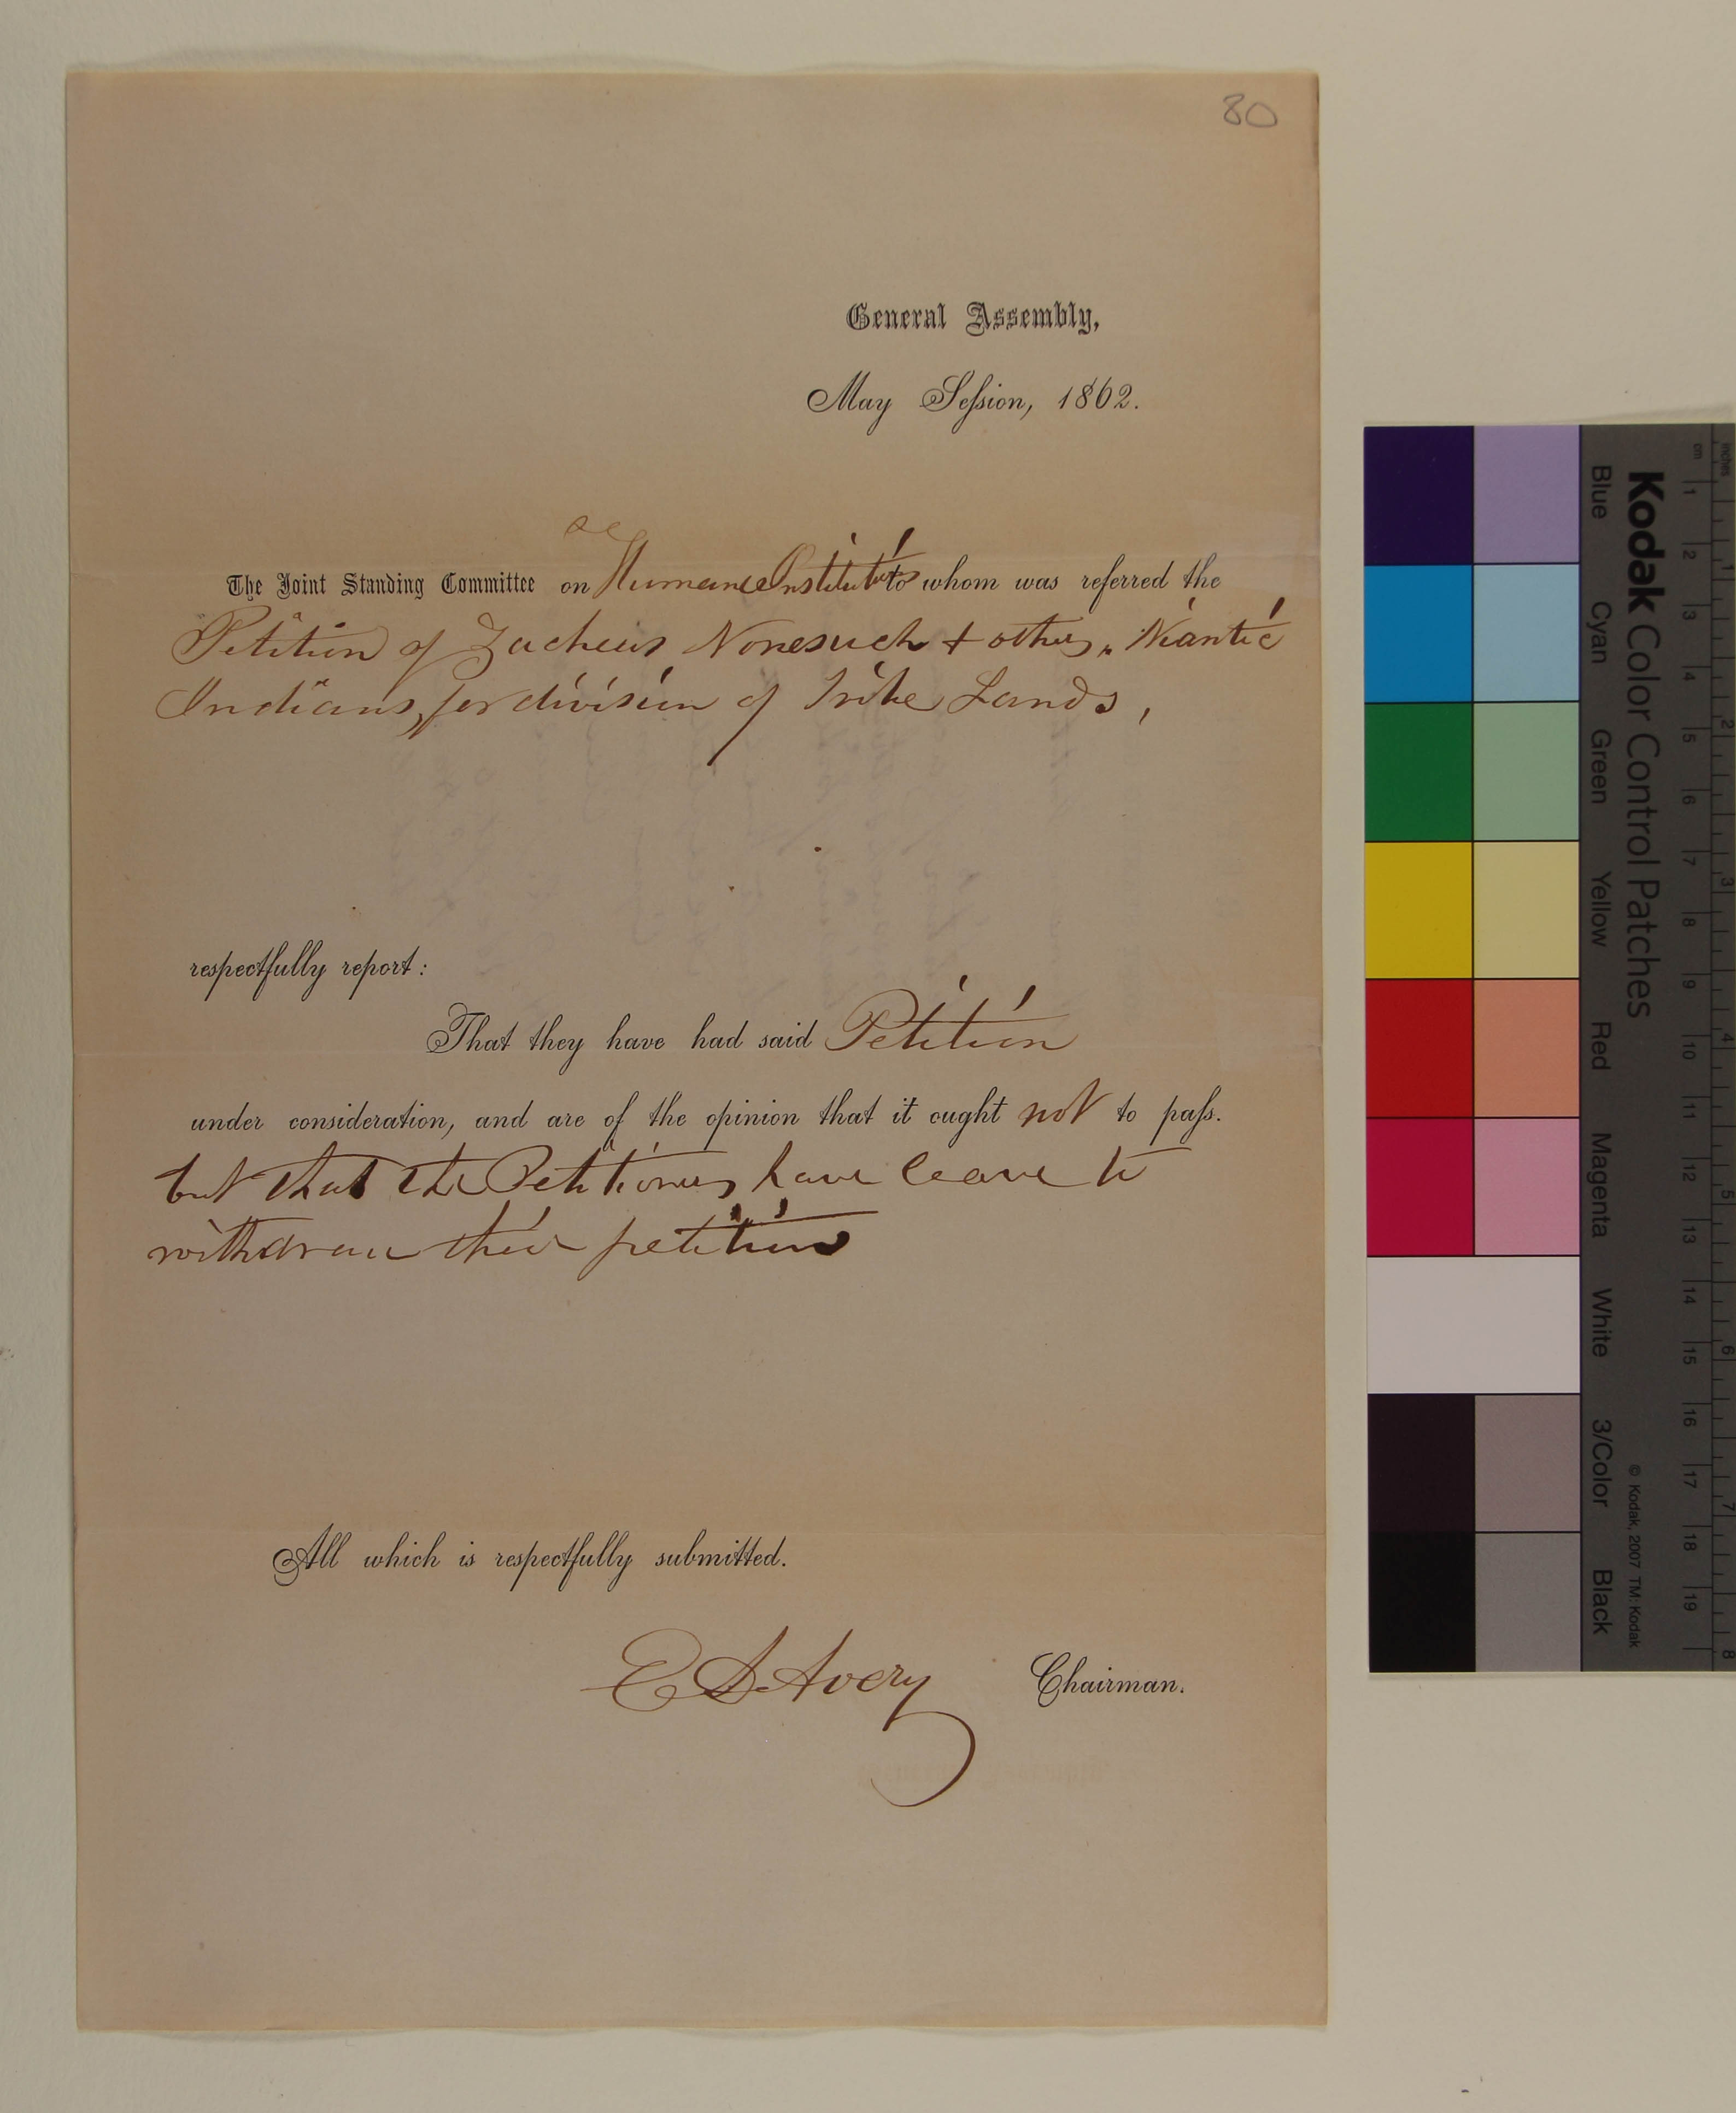 80
General Assembly,
May Session, 1862.
The Joint Standing Committee on Humane Institut to whom was referred the
Petition of Zacheus Nonesuch + others, Niantic
Indians, for division of Tribe Lands,
respectfully report:
That they have had said Petition
under consideration, and are of the opinion that it ought not to pass.
but that the Petitioners have leave to
withdraw their petition
All which is respectfully submitted.
E S Avery Chairman.
Kodak Color Control Patches
© Kodak, 2007 TM: Kodak
Blue Cyan Green Yellow Red Magenta White 3/Color Black
cm 1 2 3 4 5 6 7 8 9 10 11 12 13 14 15 16 17 18 19
inches 1 2 3 4 5 6 7 8